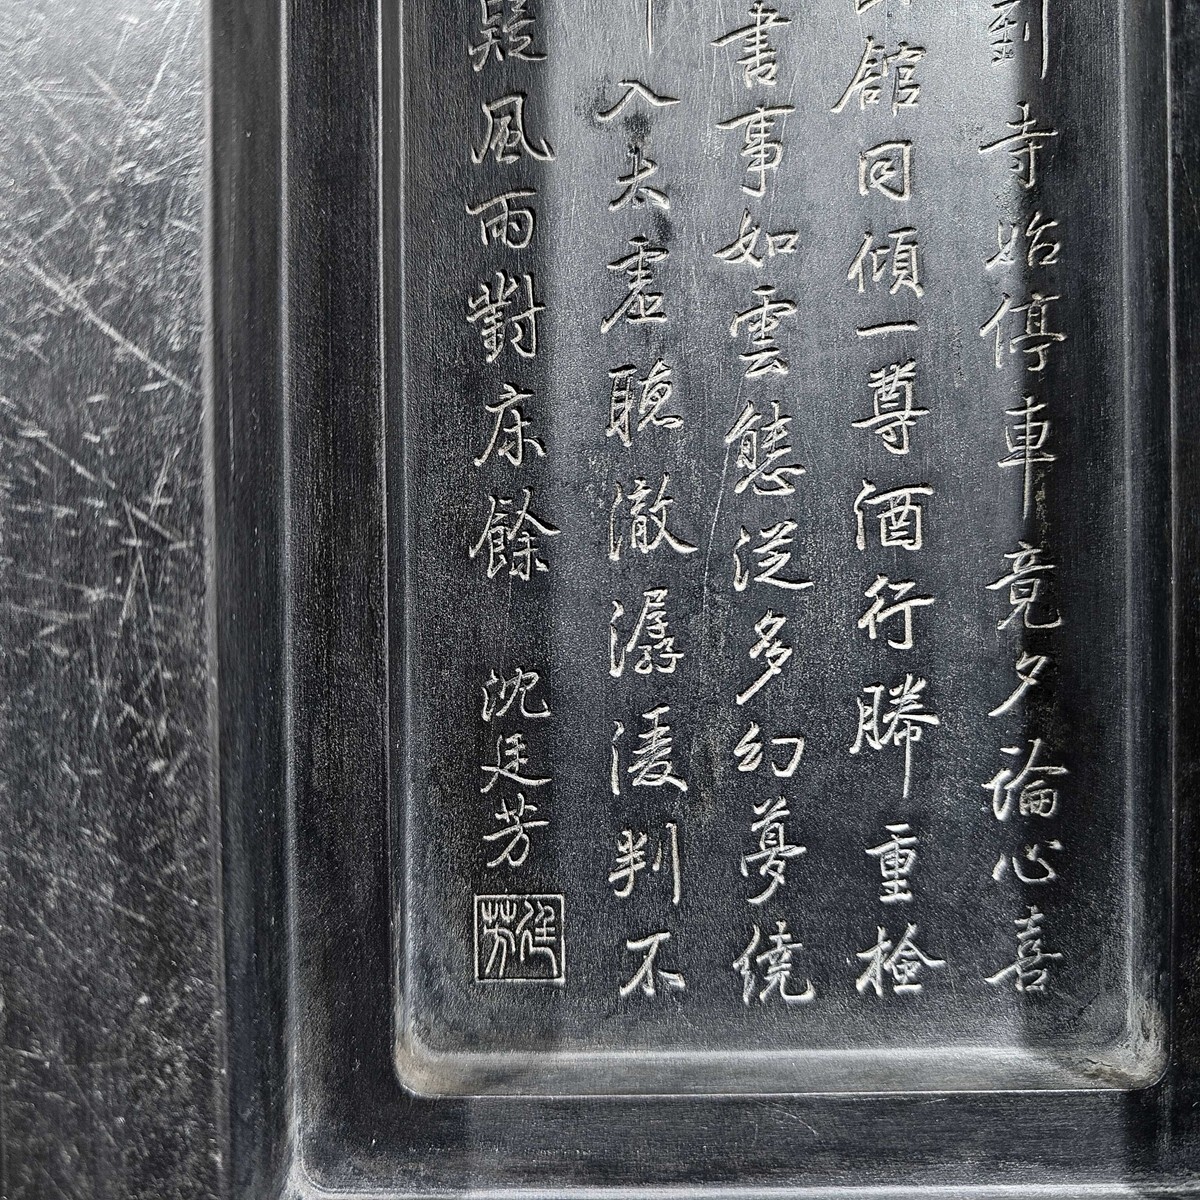 到寺始停車竟夕論心喜
館同傾一尊酒行勝重檢
書事如雲態從多幻夢繞
入太虛聽澈潺湲判不
疑風雨對床餘 沈廷芳
廷芳